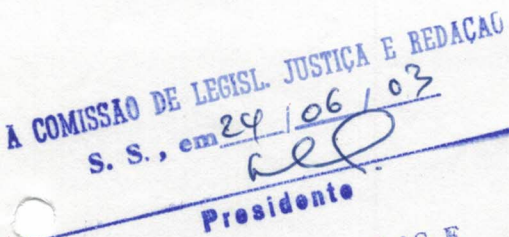 A COMISSAO DE LEGISL. JUSTIÇA E REDAÇAO
S. S., em 24 / 06 / 03
Presidente